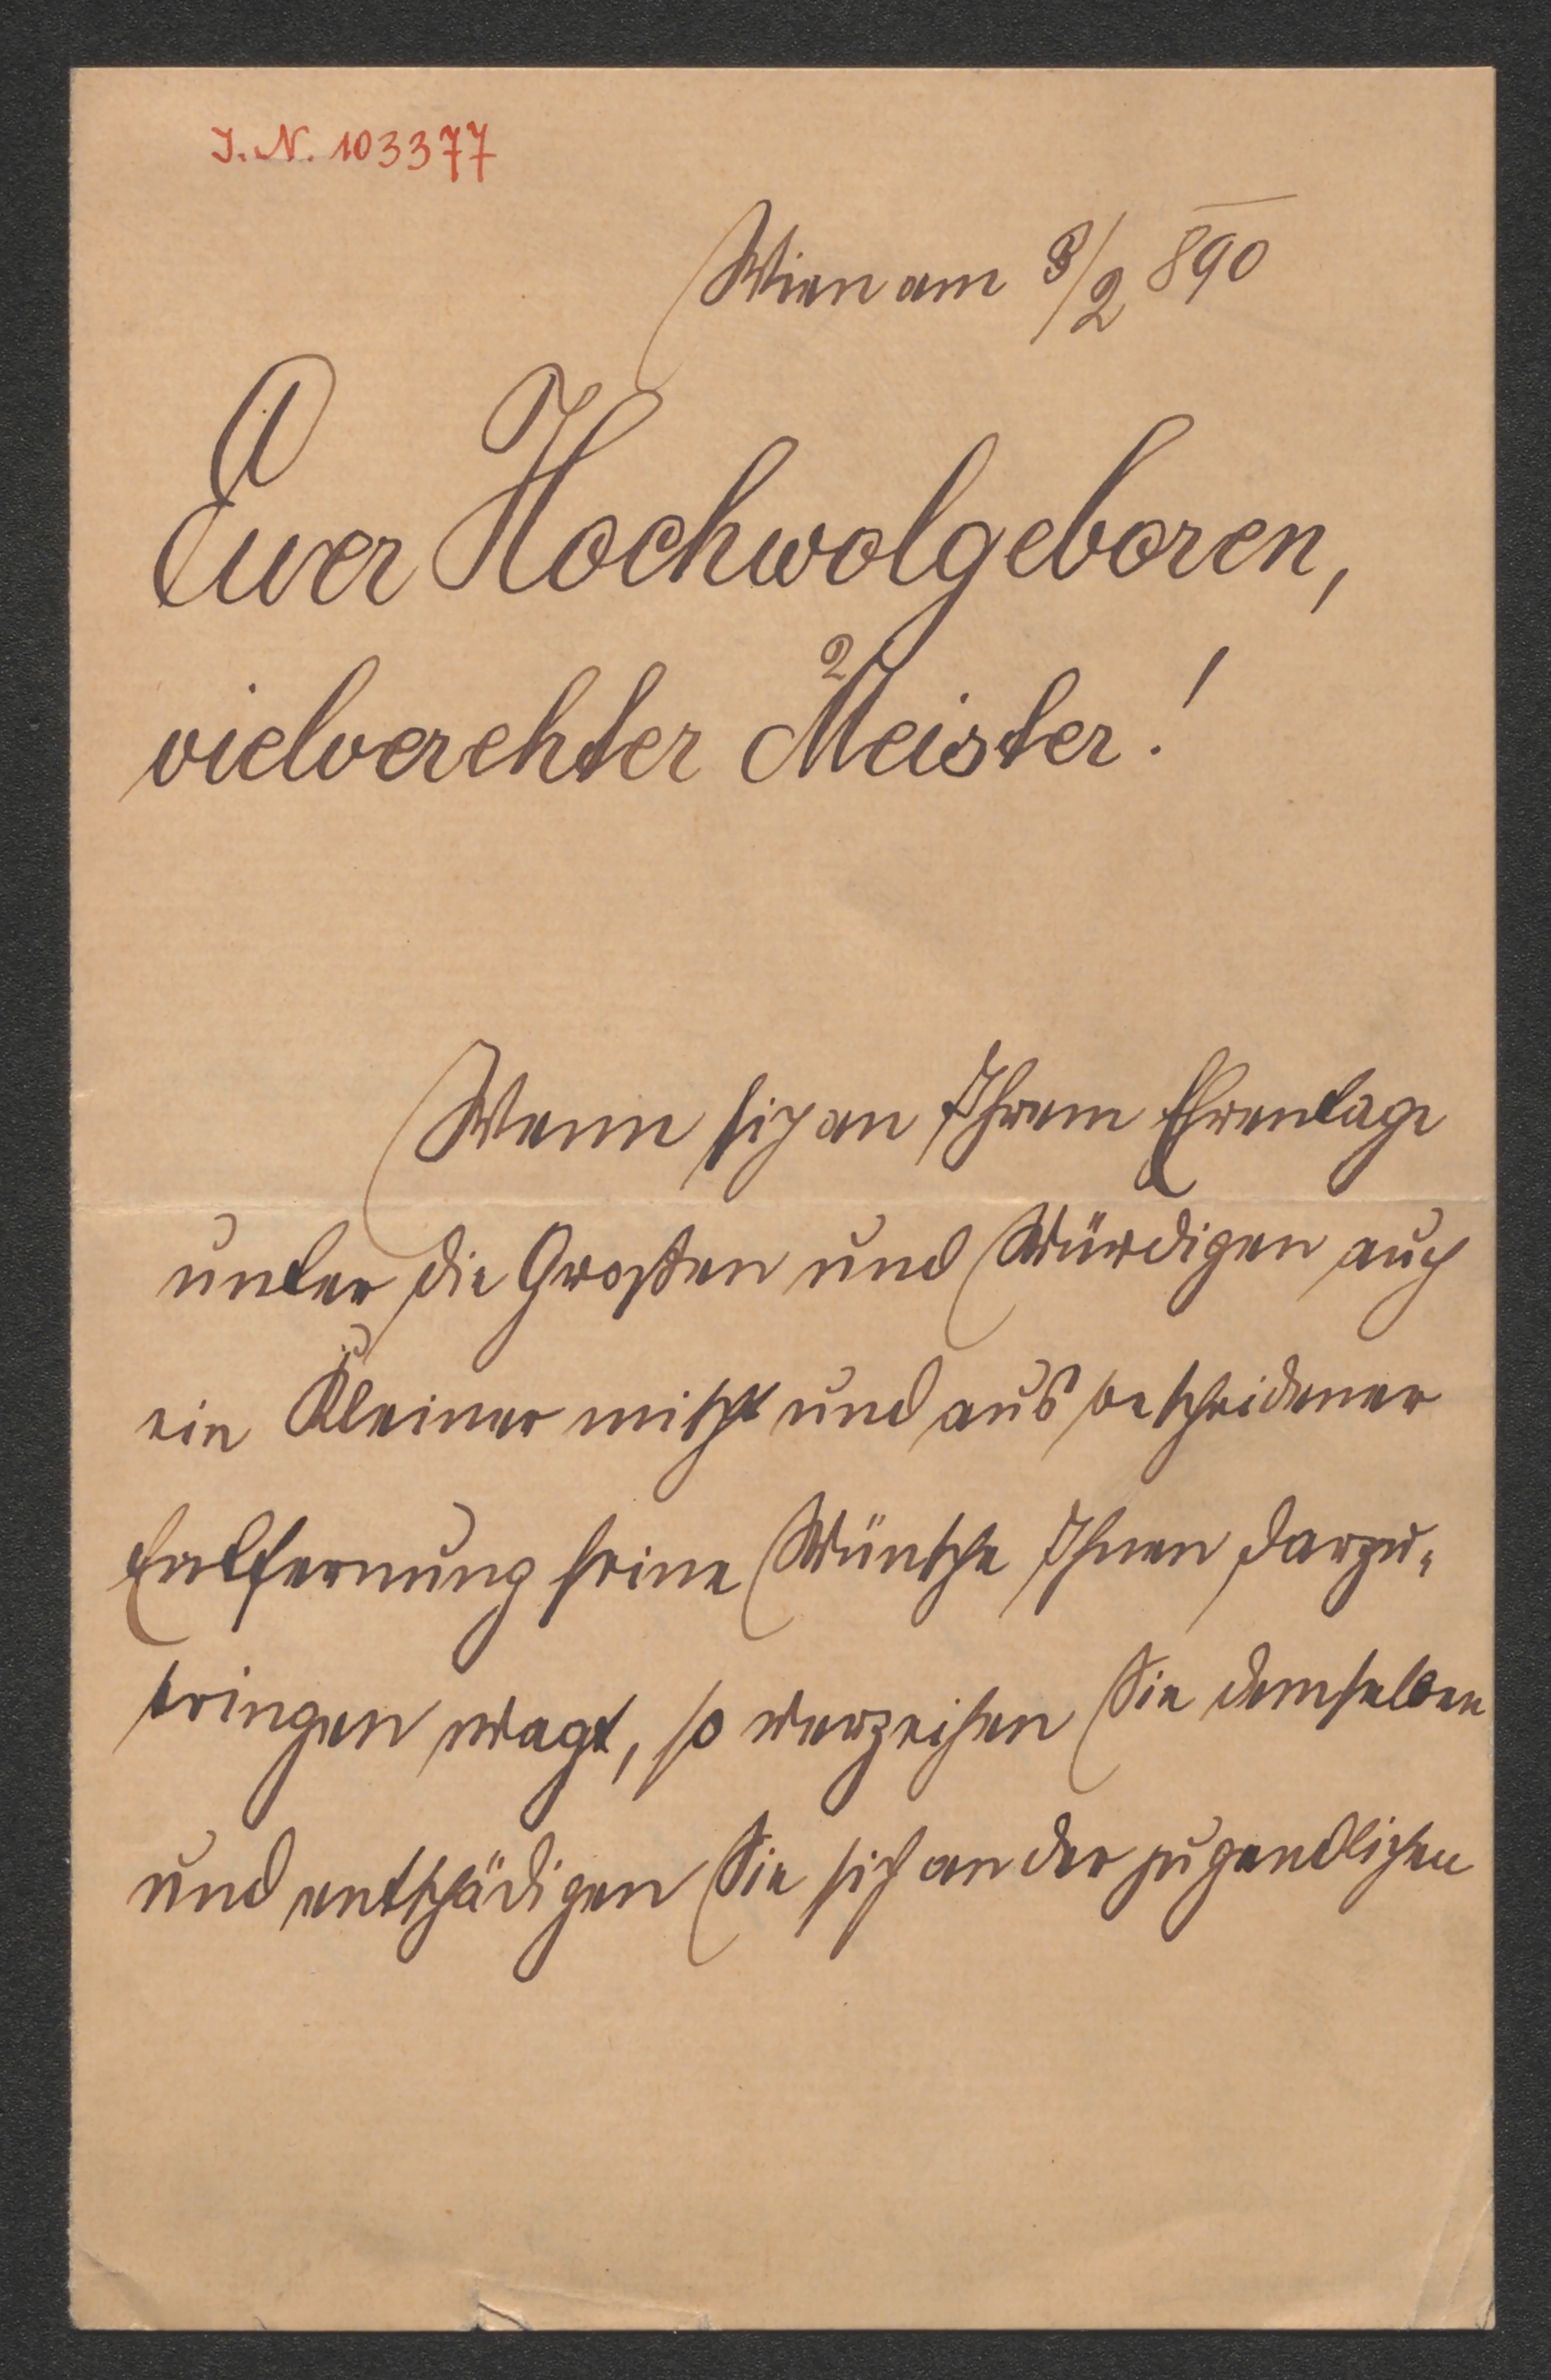 J. N. 103377
Wien am 8/2 890
Euer Hochwolgeboren,
vielverehter Meister!
Wenn sich an Ihrem Ehrentage
unter die Großen und Würdigen auch
ein Kleiner mischt und aus bescheidener
Entfernung seine Wünsche Ihnen darzu-
bringen wagt, so verzeihen Sie demselben
und entschädigen Sie sich an der jugendlichen